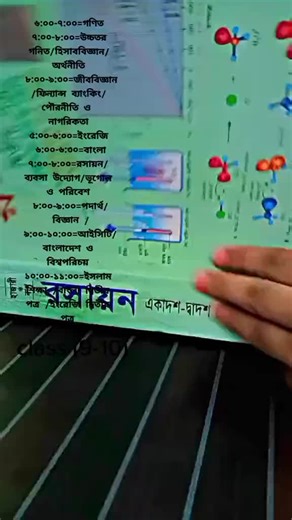 ৬:০০-৭:০০=গণিত
৭:০০-৮:০০=উচ্চতর
গনিত/হিসাববিজ্ঞান/
অর্থনীতি
৮:০০-৯:৩০=জীববিজ্ঞান
/ফিন্যান্স ব্যাংকিং/
পৌরনীতি ও
নাগরিকতা
৫:০০-৬:০০=ইংরেজি
৬:০০-৬:০০=বাংলা
৭:০০-৮:০০=রসায়ন/
ব্যবসা উদ্যোগ/ভূগোল
ও পরিবেশ
৮:০০-৯:০০=পদার্থ/
বিজ্ঞান /
৯:০০-১০:০০=আইসিটি/
বাংলাদেশ ও
বিশ্বপরিচয়
১০:০০-১১:০০=ইসলাম
শিক্ষা
পত্র /ইংরেজি দ্বিতীয়
পত্র
রসায়ন একাদশ-দ্বাদশ
class (9-10)